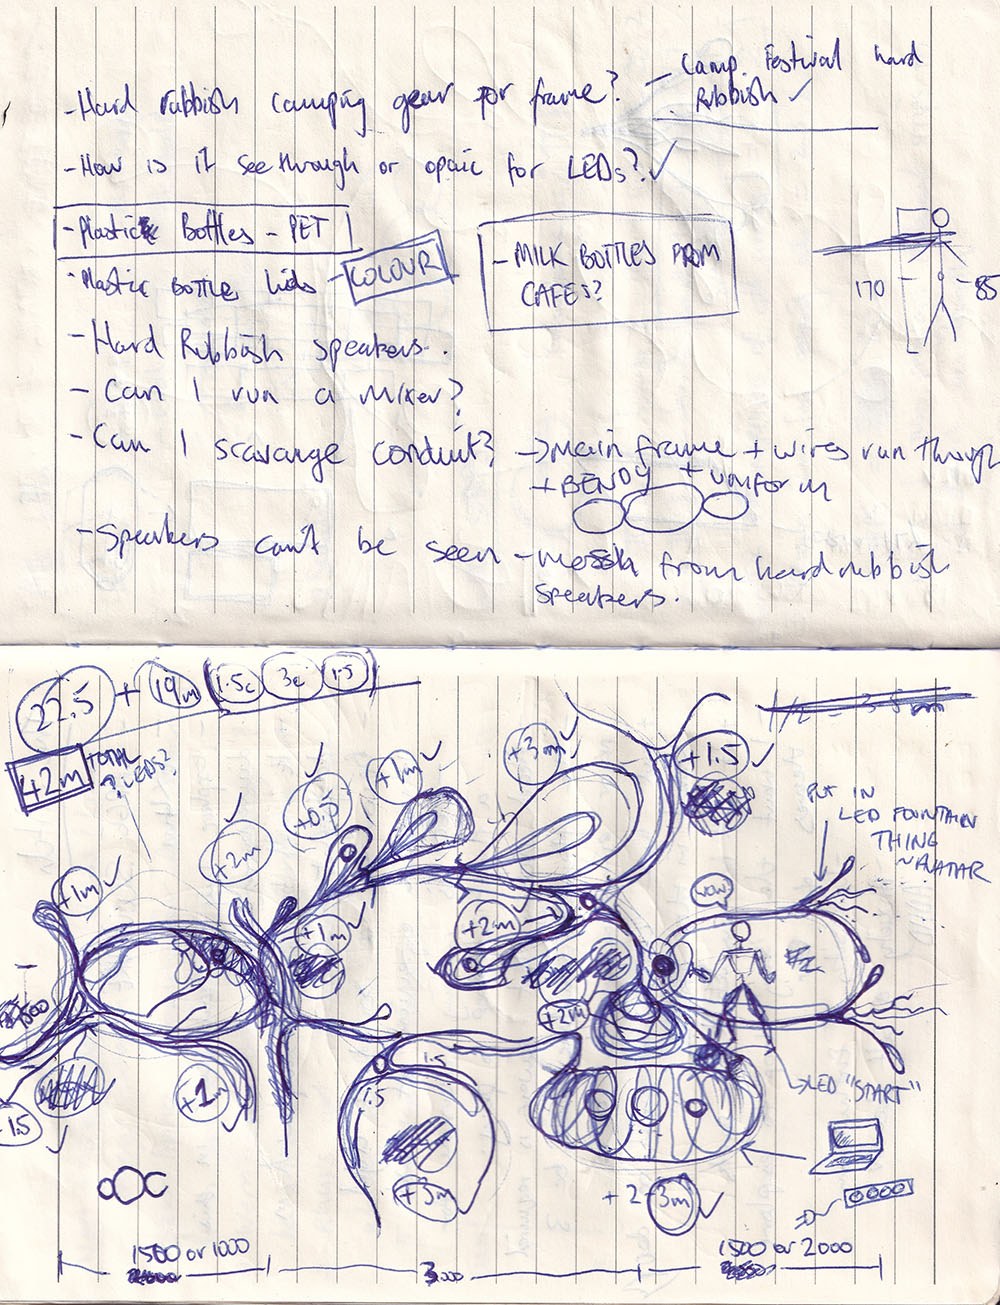 -Hard rubbish camping gear for frame?
- Camp. Festival hard
Rubbish ✓
-How is it see through or opaic for LEDs? ✓
-Plastic Bottles - PET
- MILK BOTTLES FROM
CAFES?
Plastic Bottle lids - COLOUR
170
-85
-Hard Rubbish speakers.
- Can I run a mixer?
- Can I scavange conduit? → main frame + wires run though
+ BENDY + UNIFORM
- Speakers can't be seen - mesh from hard rubbish
speakers.
22.5 + 19m 1.5c 3c 1.5
1/2 = 35m
42m TOTAL
? LEDS?
+1m
+2m
+0.5
+1m
+3m
+1.5
PUT IN
LED FOUNTAIN
THING
~AVATAR
WOW
+1m
+2m
+2m
1.5
1.5
+1m
1.5
LED "START"
+3m
+2-3m
1500 or 1000
1500 or 2000